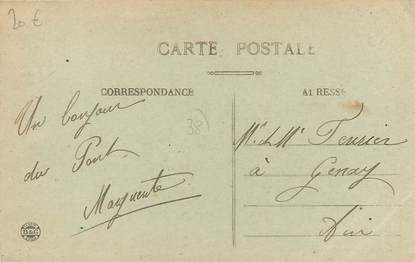 20 €
CARTE POSTALE
CORRESPONDANCE
ADRESSE
Un bonjour
du Pont
Marguerite
38)
Mr et Me Terrier
à Genay
Ain
B&G